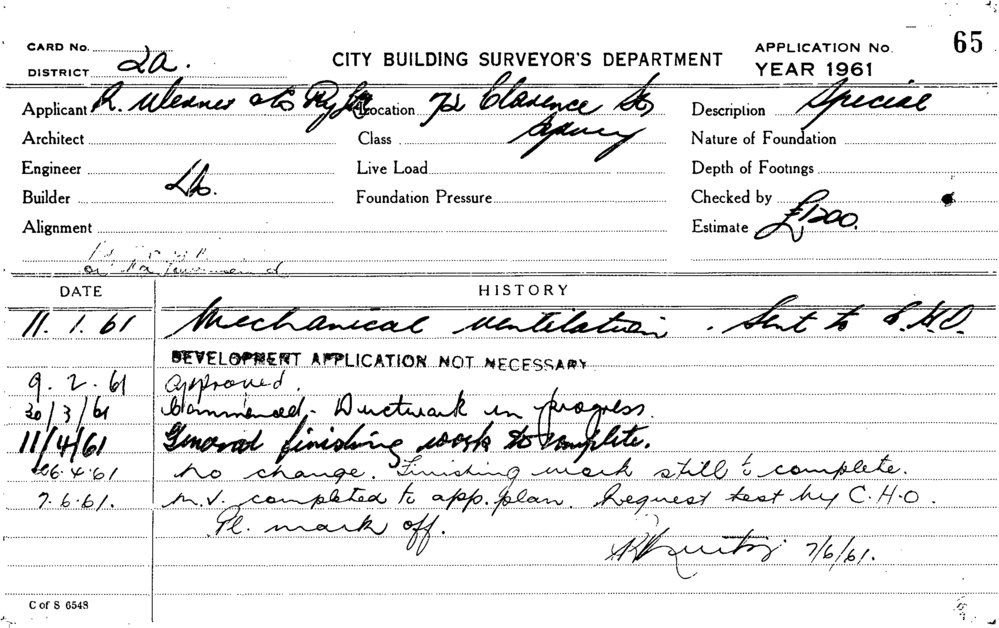 CARD No.
DISTRICT 2a.
CITY BUILDING SURVEYOR'S DEPARTMENT
APPLICATION No. 65
YEAR 1961
Applicant R. Location 72 Clarence St, Description Special
Sydney
Architect Class Nature of Foundation
Engineer Live Load Depth of Footings
Builder Foundation Pressure Checked by
Alignment Estimate £1200.
DATE HISTORY
11. 1. 61 Mechanical ventilation. Sent to C.H.O.
DEVELOPMENT APPLICATION NOT NECESSARY
9. 2. 61 approved.
30/3/61 Commenced - Ductwork in progress.
11/4/61 General finishing work to complete.
26.4.61 No change. Finishing work still to complete.
7.6.61. M.V. completed to app. plan. Request test by C.H.O.
Pl. mark off.
7/6/61.
C of S 6548